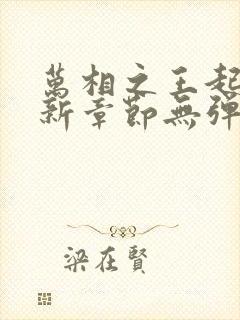 萬相之王起
新章節無彈
梁在賢